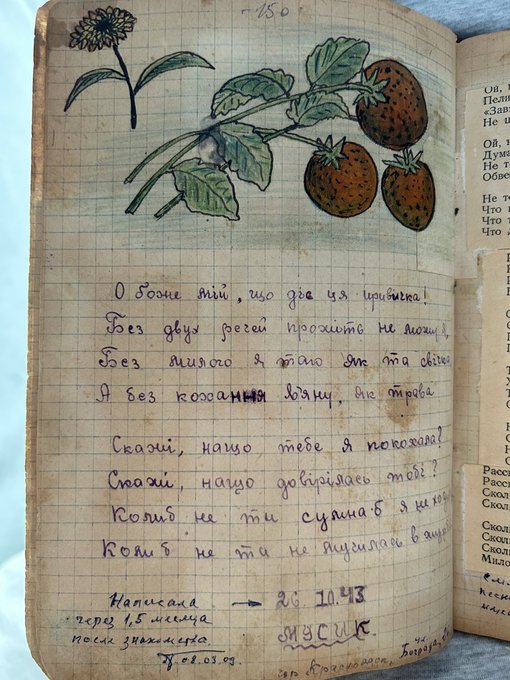 - 150
О боже мій, що діє ця привичка!
Без двух речей прожить не можу я,
Без милого я таю як та свічка
А без кохання в'яну, як трава
Скажі, нащо тебе я покохала?
Скажі, нащо довірілась тобі?
Колиб не ти сумна-б я не ходи
Колиб не та не мучилась в жур
Написала → 26.10.43
через 1,5 месяца
после знакомства.
08.03.09.
МУСИК
гор Красноводск,
ул.
Ой,
Пели
«Зави
Не ш
Ой, н
Дума
Не т
Обве
Не то
Что
Что
Что
Расс
Расс
Скол
Скол
Скол
Скол
Скол
Мило